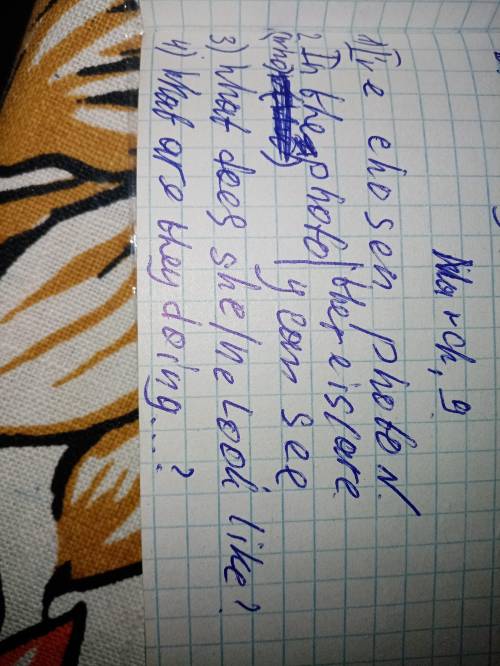 March, 9
1) I've chosen photo N.
2. In the photo / there is/are
(who) I can see
3) What does she/he look like?
4) What are they doing...?